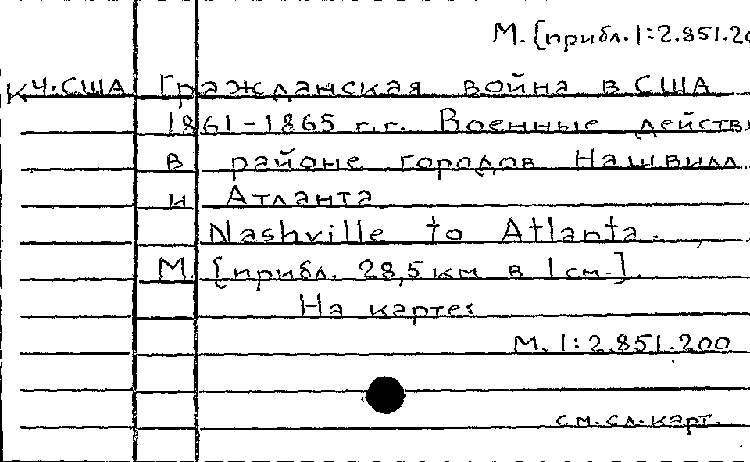 М. [прибл. 1:2.851.20
КЧ.США Гражданская война в США
1861-1865 г.г. Военные действ
в районе городов Нашвилл
и Атланта
Nashville to Atlanta.
М. [прибл. 28,5 км в 1 см.].
На карте:
М. 1:2.851.200
см.сл.карт.